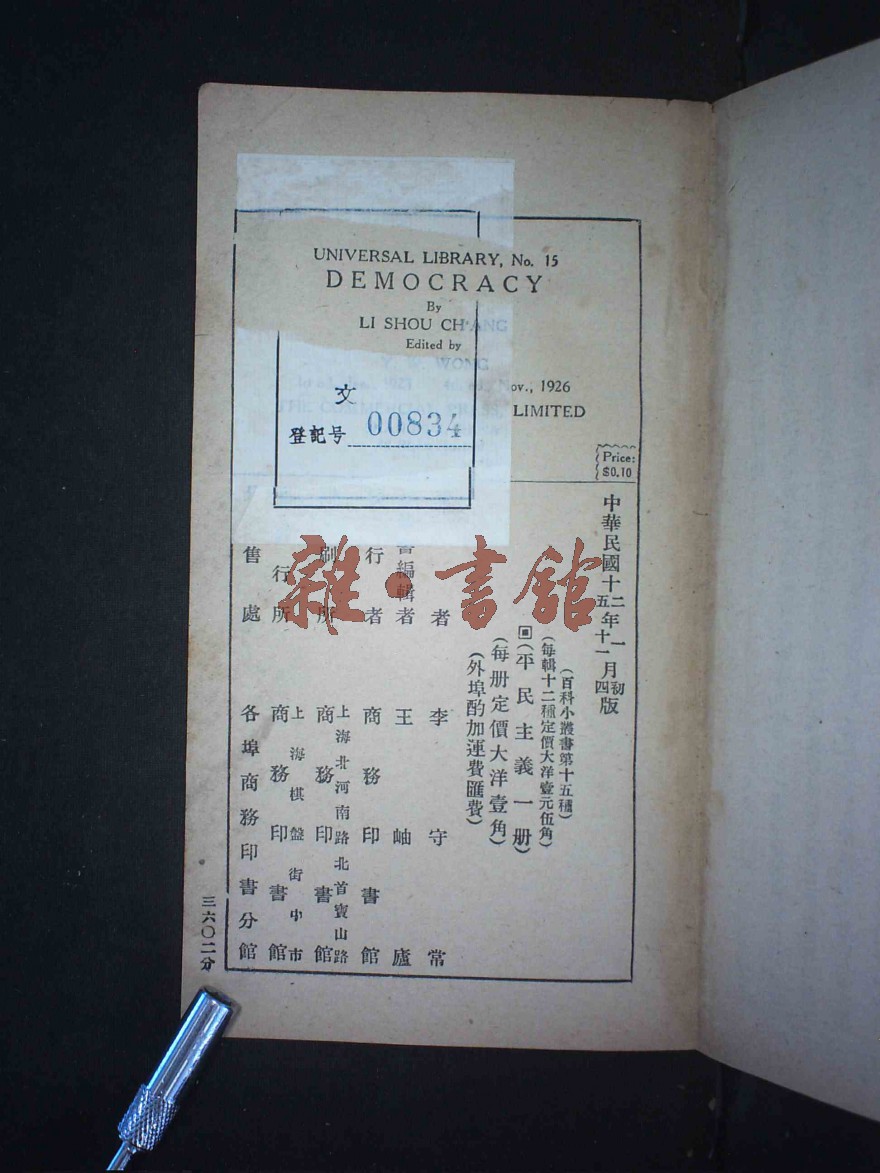 UNIVERSAL LIBRARY, No. 15
DEMOCRACY
By
LI SHOU CH'ANG
Edited by
WONG
ov., 1926
LIMITED
Price:
$0.10
文
登記号 00834
中華民國十二年一月初版
五 十一 四
(百科小叢書第十五種)
(每輯十二種定價大洋壹元伍角)
(平民主義一册)
(每册定價大洋壹角)
(外埠酌加運費匯費)
者 李守常
書編輯者 王岫廬
行者 商務印書館
刷所 上海北河南路北首寶山路 商務印書館
行所 上海棋盤街中市 商務印書館
售處 各埠商務印書分館
三六〇二分
雜·書館